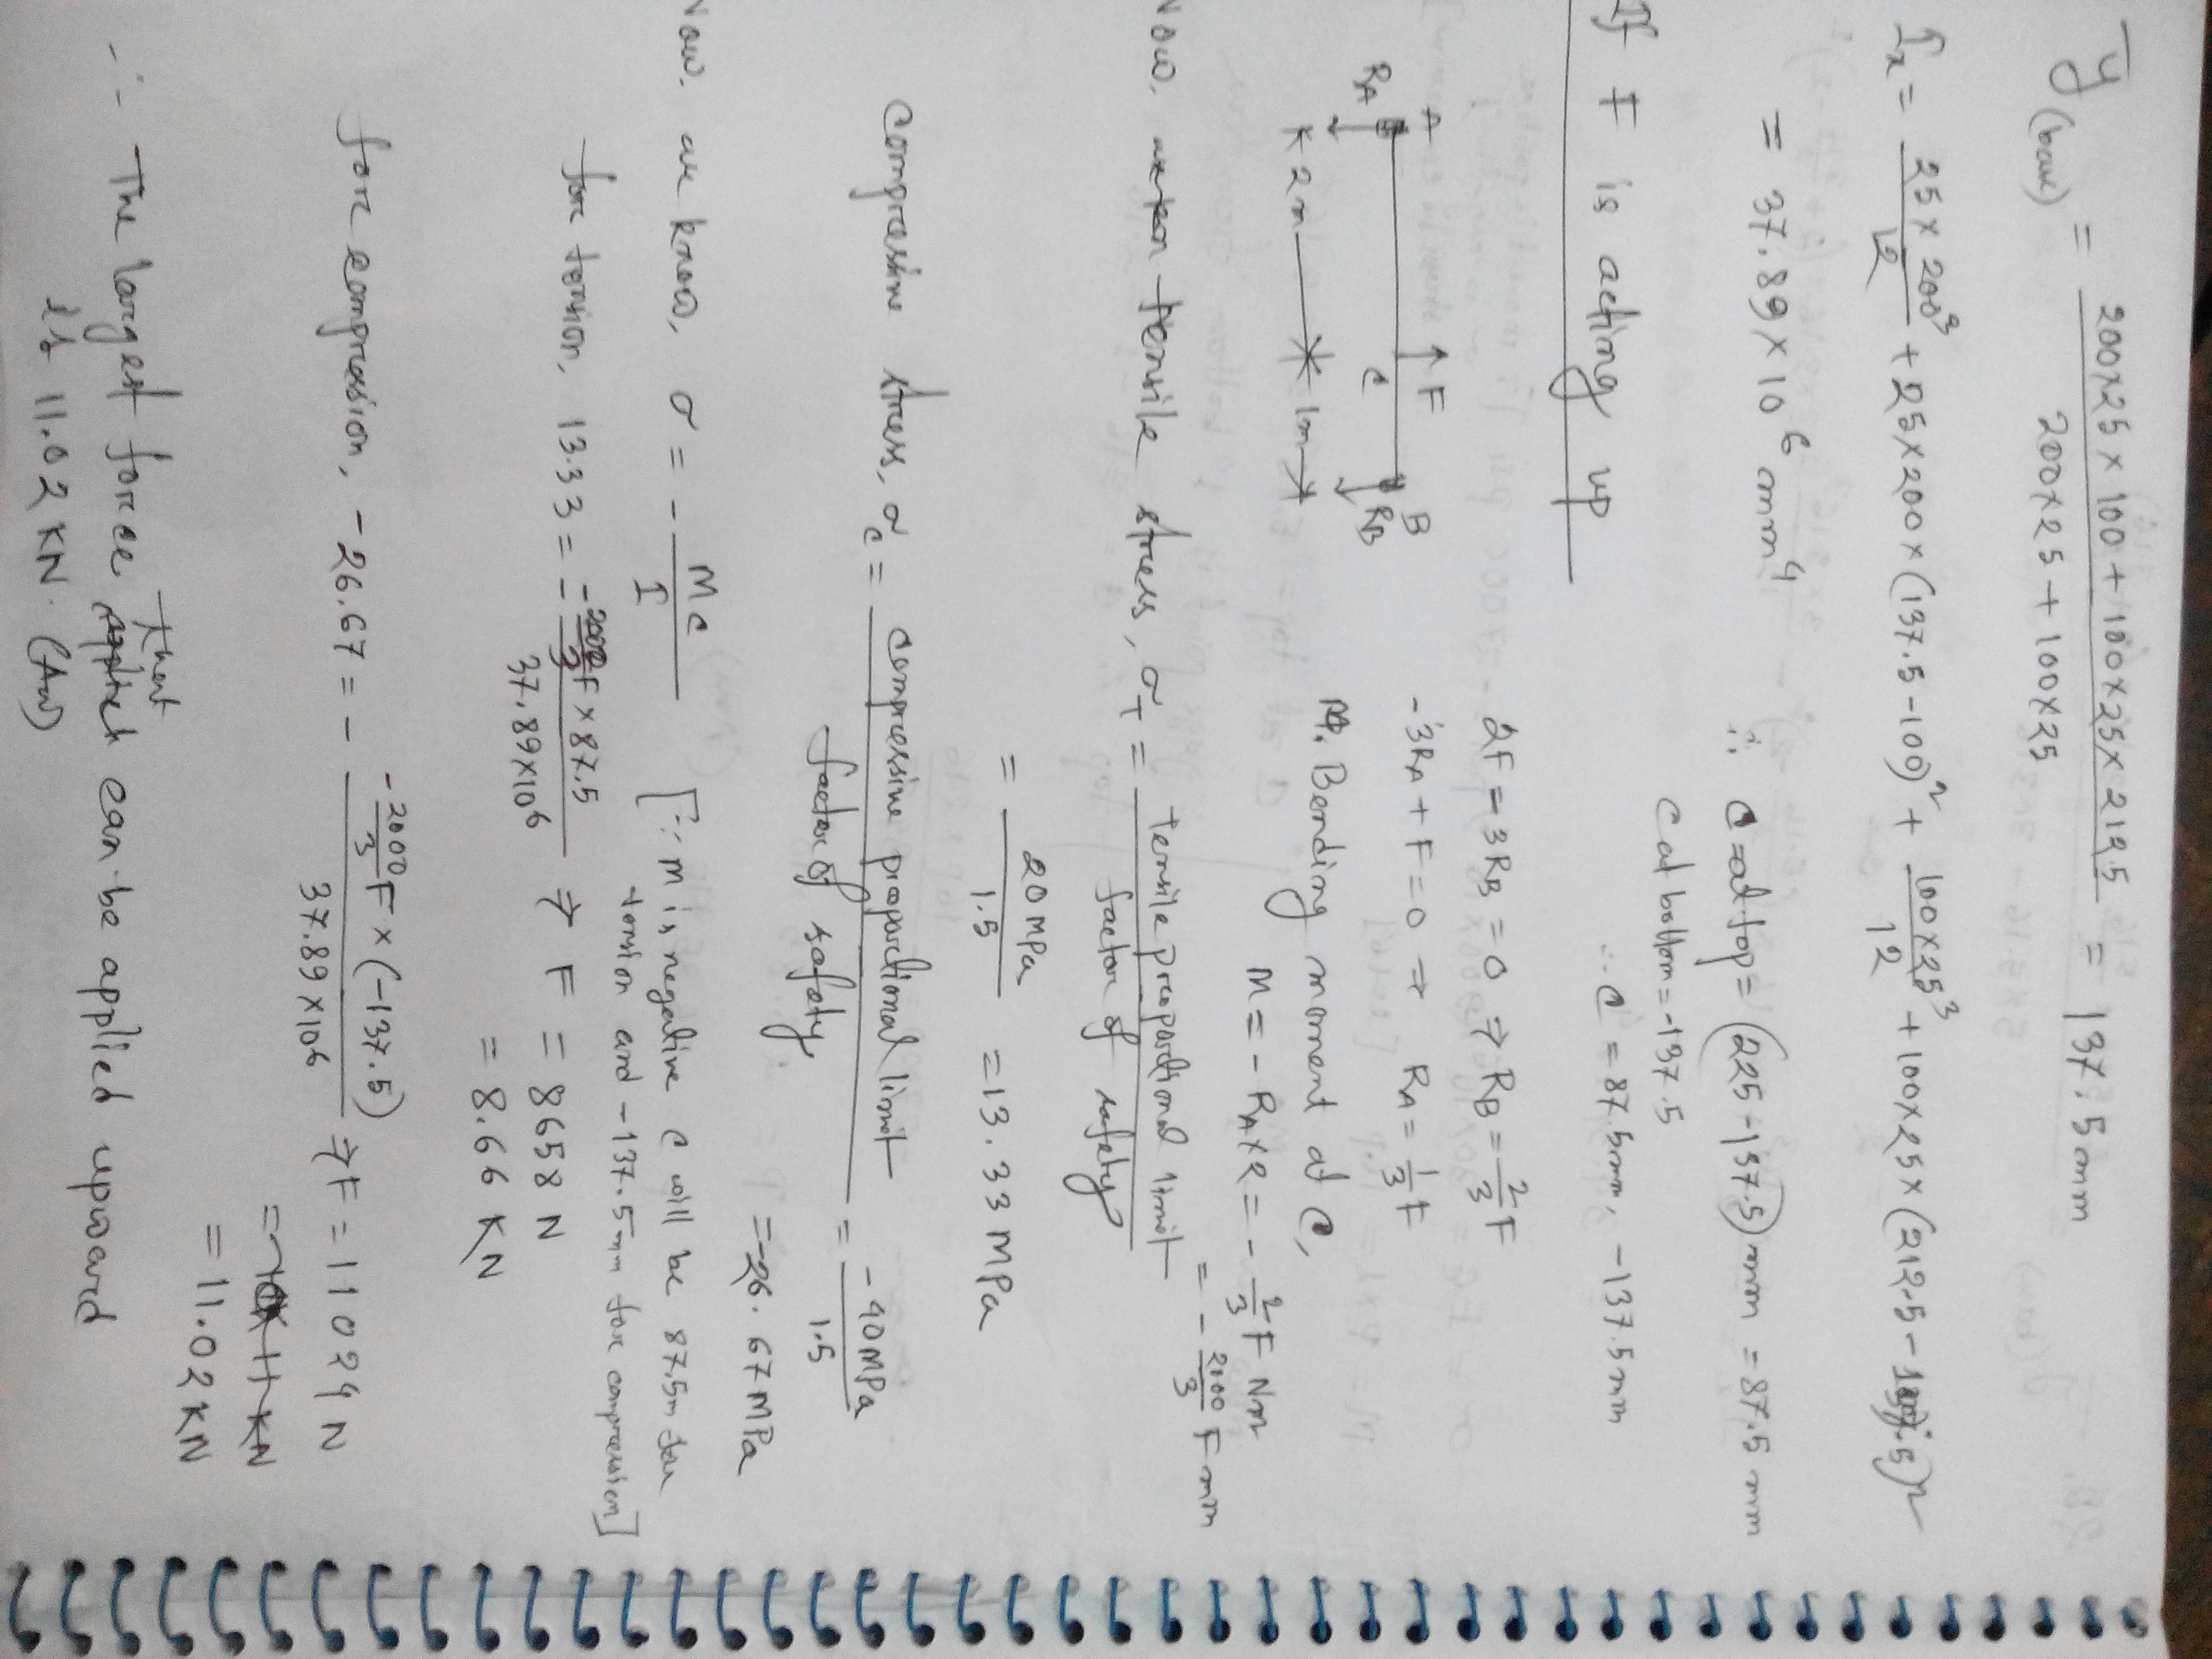 ȳ (bar) = (200×25×100 + 100×25×212.5) / (200×25 + 100×25) = 137.5 mm
Ix = 25×200³/12 + 25×200×(137.5-100)² + 100×25³/12 + 100×25×(212.5-137.5)²
= 37.89×10⁶ mm⁴
∴ C at top = (225-137.5) mm = 87.5 mm
C at bottom = -137.5
∴ C = 87.5mm, -137.5mm
If F is acting up
A F C B
RA RB
2m 1m
2F - 3RB = 0 ⇒ RB = 2/3 F
-3RA + F = 0 ⇒ RA = 1/3 F
Bending moment at C,
M = -RA×2 = -2/3 F Nm
= -2000/3 F Nmm
Now, tensile stress, σT = tensile proportional limit / factor of safety
= 20 MPa / 1.5 = 13.33 MPa
Compressive stress, σc = compressive proportional limit / factor of safety = -40 MPa / 1.5
= -26.67 MPa
Now, we know, σ = - Mc / I [∵ M is negative c will be 87.5mm for
tension and -137.5mm for compression]
for tension, 13.33 = - (-2000/3 F × 87.5) / 37.89×10⁶ ⇒ F = 8658 N
= 8.66 KN
for compression, -26.67 = - (-2000/3 F × (-137.5)) / 37.89×10⁶ ⇒ F = 11024 N
= 11.02 KN
∴ The largest force that can be applied upward
is 11.02 KN. (Ans)